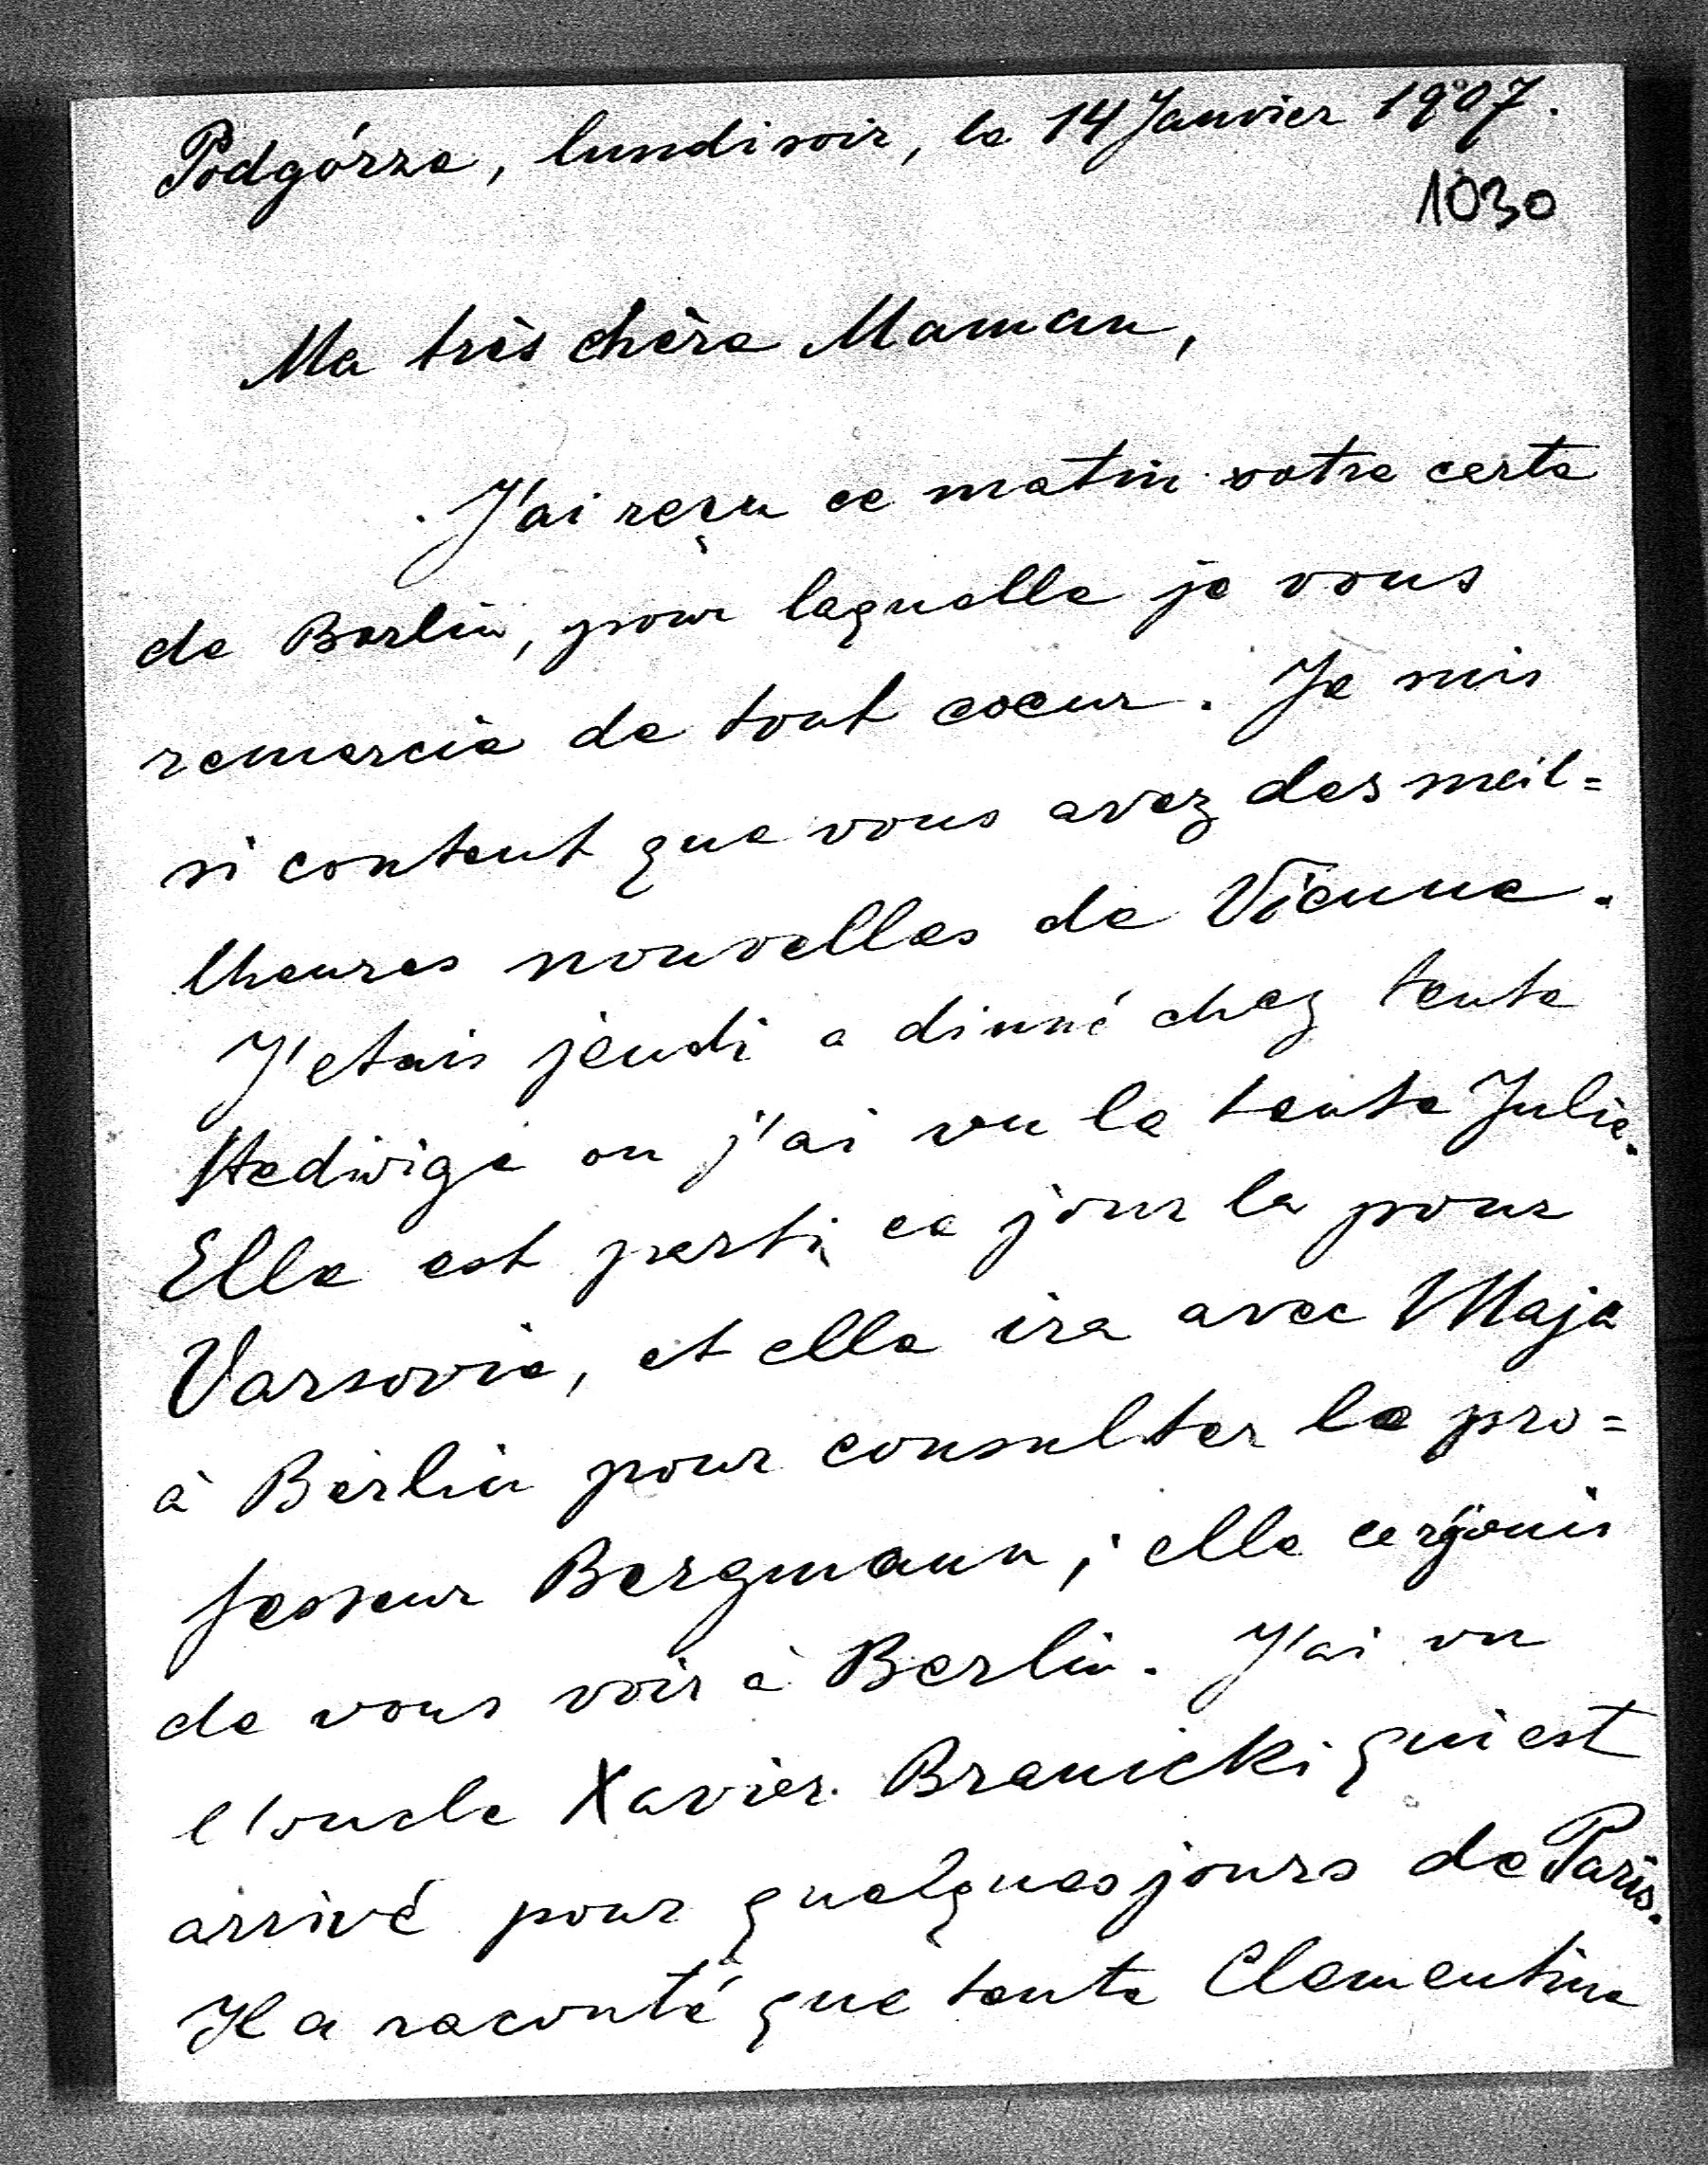 Podgórze, lundi soir, le 14 Janvier 1907.
1030
Ma très chère Maman,
J'ai reçu ce matin votre carte
de Berlin, pour laquelle je vous
remercie de tout coeur. Je suis
si content que vous avez des meil=
lheures nouvelles de Vienne.
J'etais jeudi a dinné chez tante
Hedwige ou j'ai vu la tante Julie.
Elle est parti ce jour la pour
Varsovie, et elle ira avec Maja
à Berlin pour consulter le pro=
fesseur Bergmann; elle ce rejouis
de vous voir à Berlin. J'ai vu
l'oncle Xavier Branicki qui est
arrivé pour quelques jours de Paris.
Il a raconté que tante Clementine